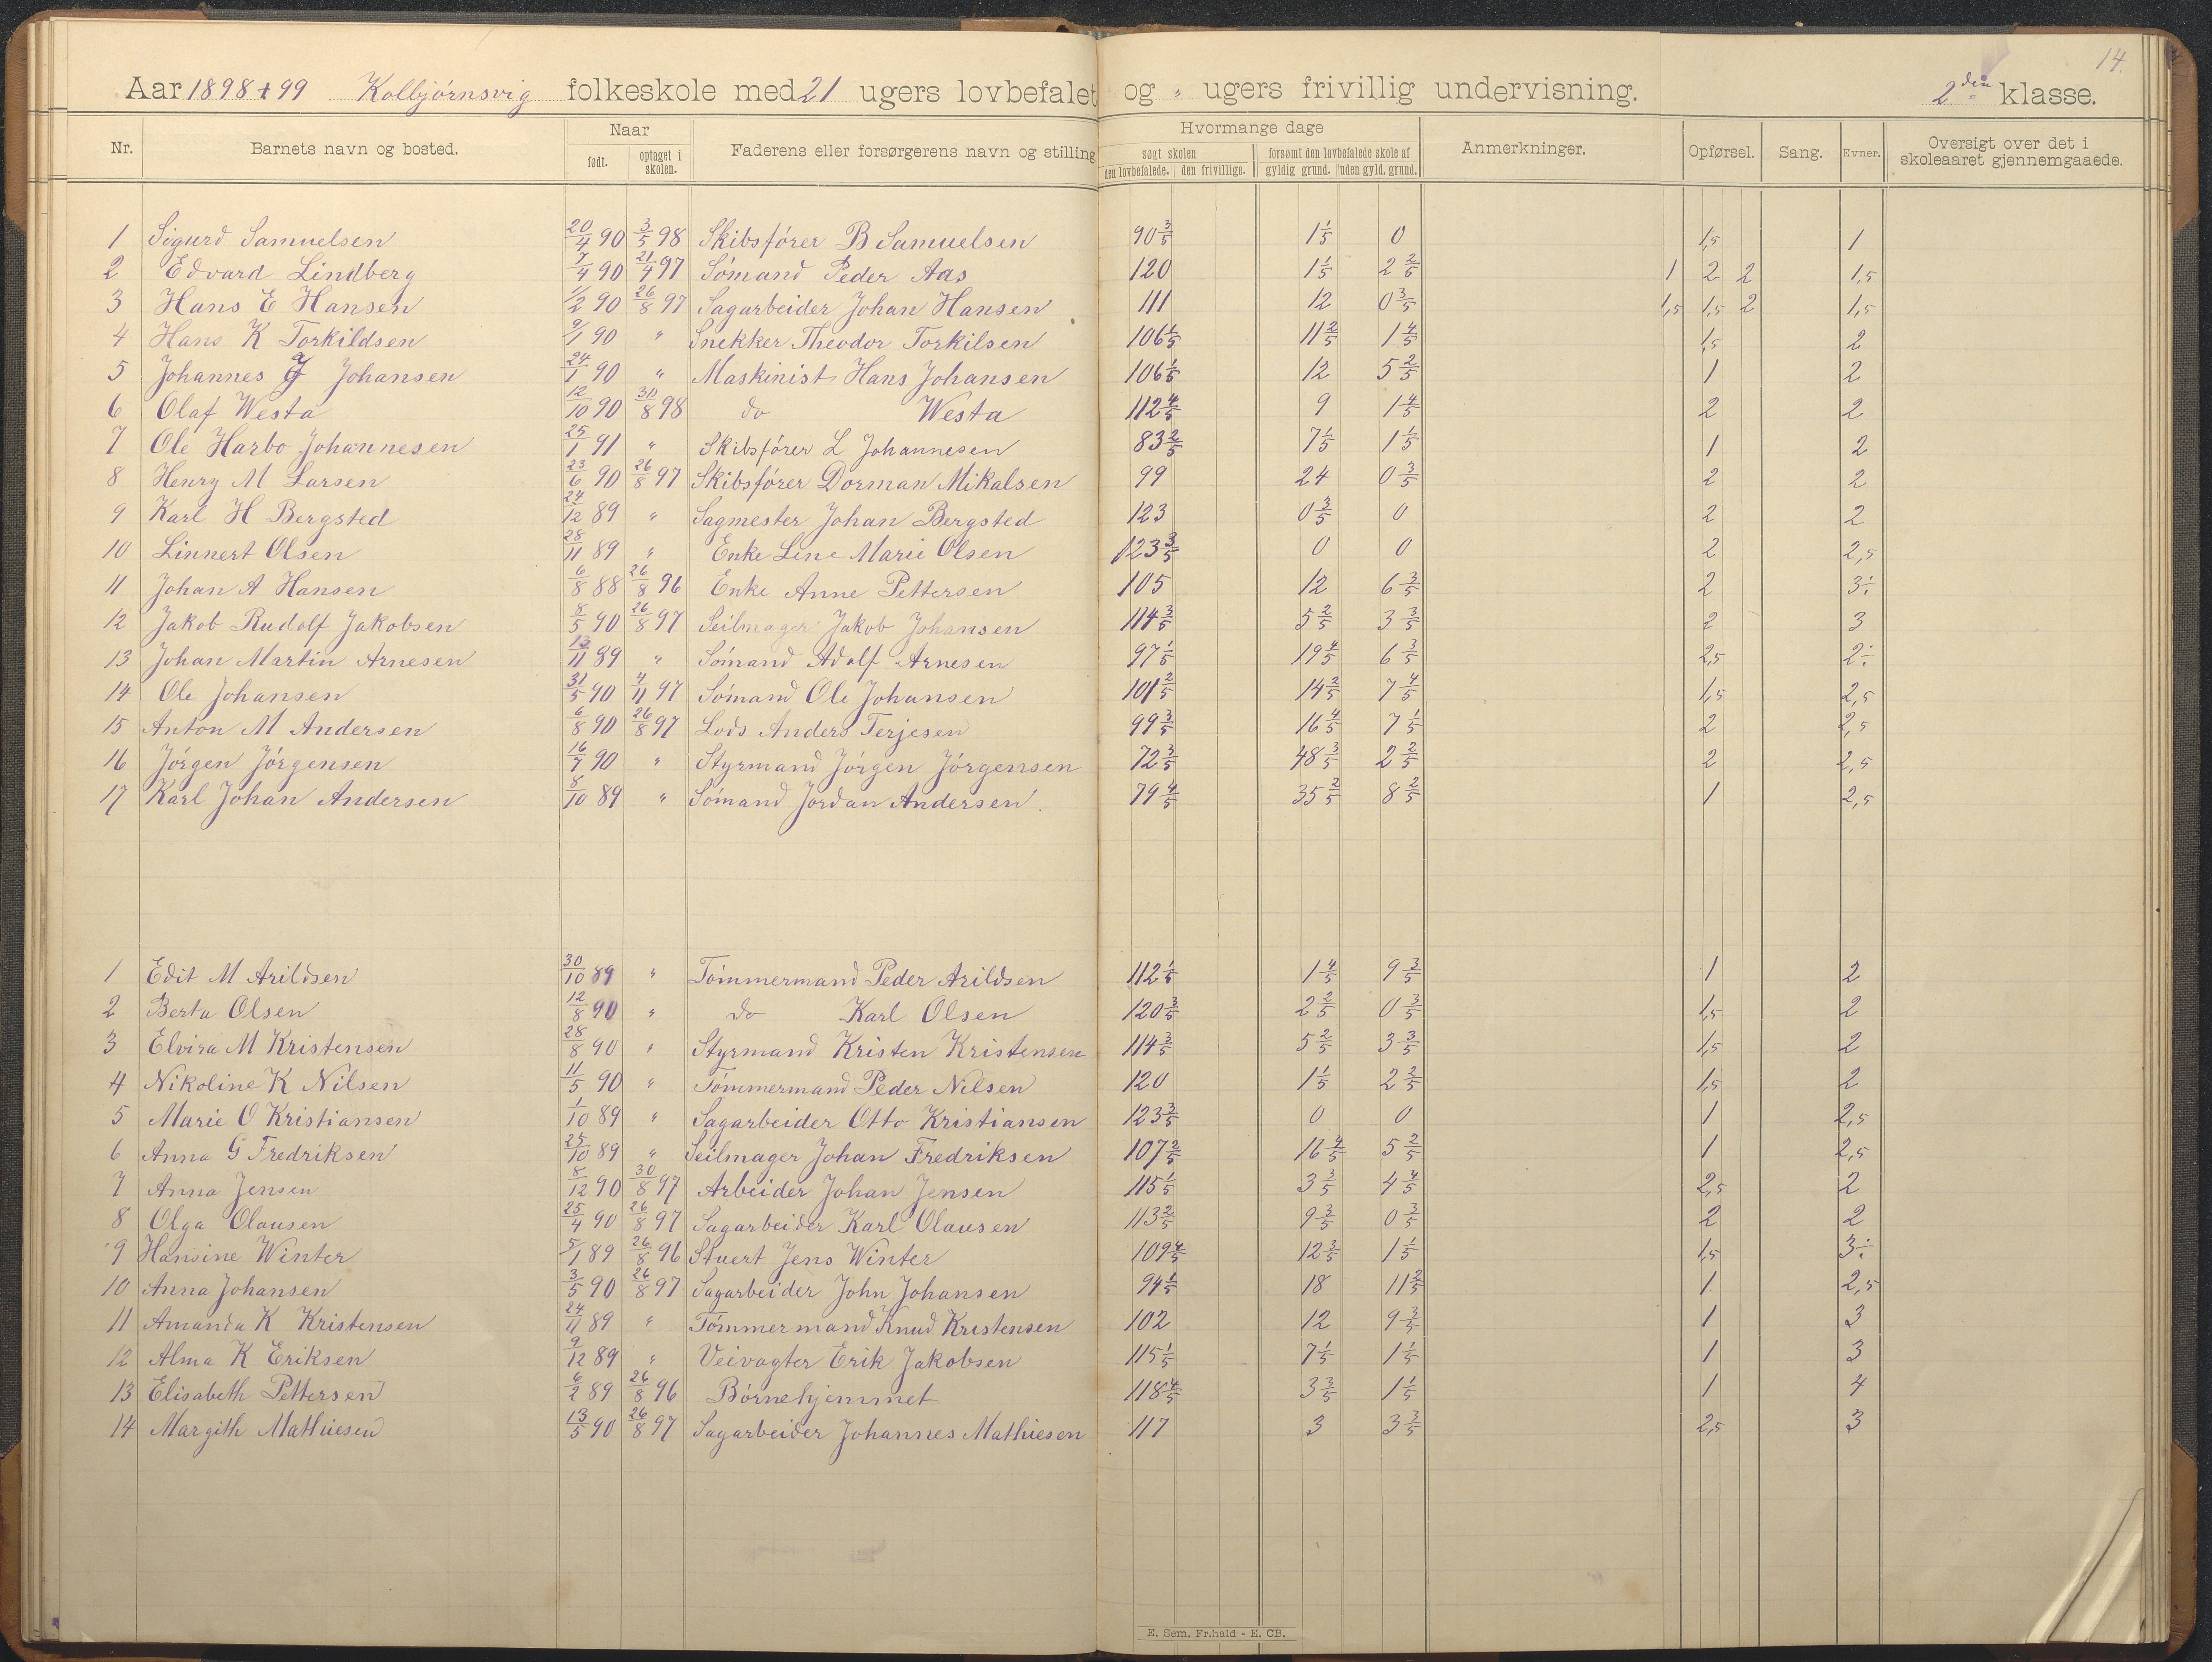 14.
Aar 1898+99 Kolbjørnsvig folkeskole med 21 ugers lovbefalet og " ugers frivillig undervisning. 2den klasse.
Nr. Barnets navn og bosted. Naar født. optaget i skolen. Faderens eller forsørgerens navn og stilling Hvormange dage søgt skolen den lovbefalede. den frivillige. forsømt den lovbefalede skole af gyldig grund. uden gyld. grund. Anmerkninger. Opførsel. Sang. Evner. Oversigt over det i skoleaaret gjennemgaaede.
1 Sigurd Samuelsen 20/4 90 3/5 98 Skibsfører B Samuelsen 90 3/5 1 1/5 0 1,5 1
2 Edvard Lindberg 7/4 90 21/4 97 Sømand Peder Aas 120 1 1/5 2 2/5 1 2 2 1,5
3 Hans E Hansen 1/2 90 26/8 97 Sagarbeider Johan Hansen 111 12 0 3/5 1,5 1,5 2 1,5
4 Hans K Torkildsen 9/1 90 " Snekker Theodor Torkilsen 106 1/5 11 2/5 1 4/5 1,5 2
5 Johannes J Johansen 24/1 90 " Maskinist Hans Johansen 106 1/5 12 5 2/5 1 2
6 Olaf Westa 12/10 90 30/8 98 do Westa 112 4/5 9 1 4/5 2 2
7 Ole Harbo Johannesen 25/1 91 " Skibsfører L Johannesen 83 2/5 7 1/5 1 1/5 1 2
8 Henry M Larsen 23/6 90 26/8 97 Skibsfører Dorman Mikalsen 99 24 0 3/5 2 2
9 Karl H Bergsted 24/12 89 " Sagmester Johan Bergsted 123 0 3/5 0 2 2
10 Linnert Olsen 28/11 89 " Enke Line Marie Olsen 123 3/5 0 0 2 2,5
11 Johan A Hansen 6/8 88 26/8 96 Enke Anne Pettersen 105 12 6 3/5 2 3÷
12 Jakob Rudolf Jakobsen 8/5 90 26/8 97 Seilmager Jakob Johansen 114 3/5 5 2/5 3 3/5 2 3
13 Johan Martin Arnesen 13/11 89 " Sømand Adolf Arnesen 97 1/5 19 4/5 6 3/5 2,5 2÷
14 Ole Johansen 31/5 90 4/11 97 Sømand Ole Johansen 101 2/5 14 2/5 7 4/5 1,5 2,5
15 Anton M Andersen 6/8 90 26/8 97 Lods Anders Terjesen 99 3/5 16 4/5 7 1/5 2 2,5
16 Jørgen Jørgensen 16/7 90 " Styrmand Jørgen Jørgensen 72 3/5 48 3/5 2 2/5 2 2,5
17 Karl Johan Andersen 8/10 89 " Sømand Jordan Andersen. 79 4/5 35 2/5 8 2/5 1 2,5
1 Edit M Arildsen 30/10 89 " Tømmermand Peder Arildsen 112 1/5 1 4/5 9 3/5 1 2
2 Berta Olsen 12/8 90 " do Karl Olsen 120 3/5 2 2/5 0 3/5 1,5 2
3 Elvira M Kristensen 28/8 90 " Styrmand Kristen Kristensen 114 3/5 5 2/5 3 3/5 1,5 2
4 Nikoline K Nilsen 11/5 90 " Tømmermand Peder Nilsen 120 1 1/5 2 2/5 1,5 2
5 Marie O Kristiansen 1/10 89 " Sagarbeider Otto Kristiansen 123 3/5 0 0 1 2,5
6 Anna G Fredriksen 25/10 89 " Seilmager Johan Fredriksen 107 2/5 16 4/5 5 2/5 1 2,5
7 Anna Jensen 8/12 90 30/8 97 Arbeider Johan Jensen 115 1/5 3 3/5 4 4/5 2,5 2
8 Olga Olausen 25/4 90 26/8 97 Sagarbeider Karl Olausen 113 2/5 9 3/5 0 3/5 2 2
9 Hansine Winter 5/1 89 26/8 96 Stuert Jens Winter 109 4/5 12 3/5 1 1/5 1,5 3÷
10 Anna Johansen 3/5 90 26/8 97 Sagarbeider John Johansen 94 1/5 18 11 2/5 1 2,5
11 Amanda K Kristensen 24/11 89 " Tømmermand Knud Kristensen 102 12 9 3/5 1 3
12 Alma K Eriksen 9/12 89 " Veivogter Erik Jakobsen 115 1/5 7 1/5 1 1/5 1 3
13 Elisabeth Pettersen 6/2 89 26/8 96 Børnehjemmet 118 4/5 3 3/5 1 1/5 1 4
14 Margith Mathiesen 13/5 90 26/8 97 Sagarbeider Johannes Mathiesen 117 3 3 3/5 2,5 3
E. Sem, Fr.hald - E. CB.